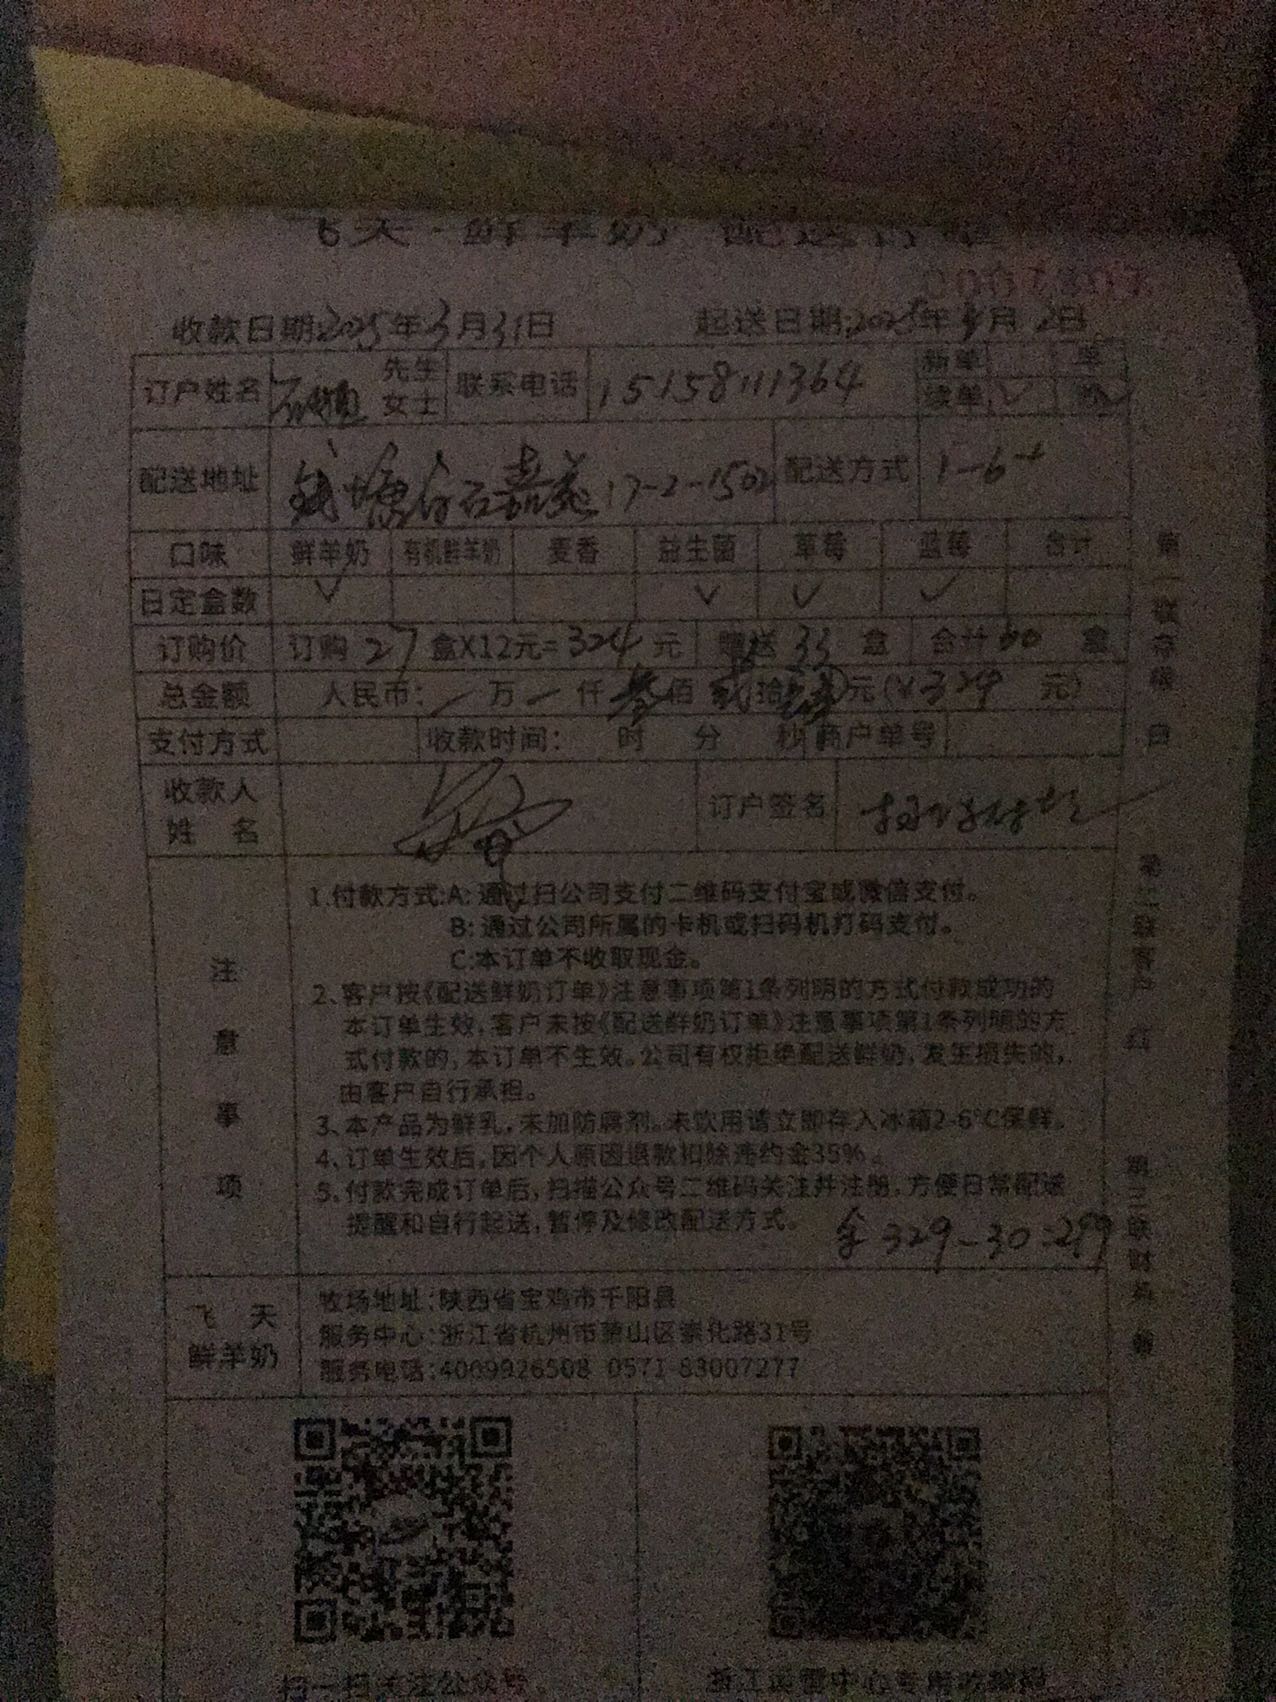 飞天·鲜羊奶 配送订单
收款日期:2025年3月31日 起送日期:2025年4月2日
订户姓名 先生 女士 联系电话 15158111364 新单 续单 ✓
配送地址 钱塘 白石嘉苑 17-2-1502 配送方式 1-6
口味 鲜羊奶 有机鲜羊奶 麦香 益生菌 草莓 蓝莓 合计
日定盒数 ✓ ✓ ✓ ✓
订购价 订购 27 盒X12元=324 元 赠送 33 盒 合计 60 盒
总金额 人民币: 万 仟 叁佰 贰拾 元(¥329 元)
支付方式 收款时间: 时 分 秒 商户单号
收款人
姓 名 订户签名
注意事项
1.付款方式:A:通过扫公司支付二维码支付宝或微信支付。
B:通过公司所属的卡机或扫码机打码支付。
C:本订单不收取现金。
2、客户按《配送鲜奶订单》注意事项第1条列明的方式付款成功的
本订单生效,客户未按《配送鲜奶订单》注意事项第1条列明的方
式付款的,本订单不生效。公司有权拒绝配送鲜奶,发生损失的,
由客户自行承担。
3、本产品为鲜乳,未加防腐剂。未饮用请立即存入冰箱2-6°C保鲜。
4、订单生效后,因个人原因退款扣除违约金35%。
5、付款完成订单后,扫描公众号二维码关注并注册,方便日常配送
提醒和自行起送,暂停及修改配送方式。
329-30=299
飞 天
鲜羊奶
牧场地址:陕西省宝鸡市千阳县
服务中心:浙江省杭州市萧山区崇化路31号
服务电话:4009926508 0571-83007277
扫一扫关注公众号
第一联存根 白
第二联客户 红
第三联财务 黄